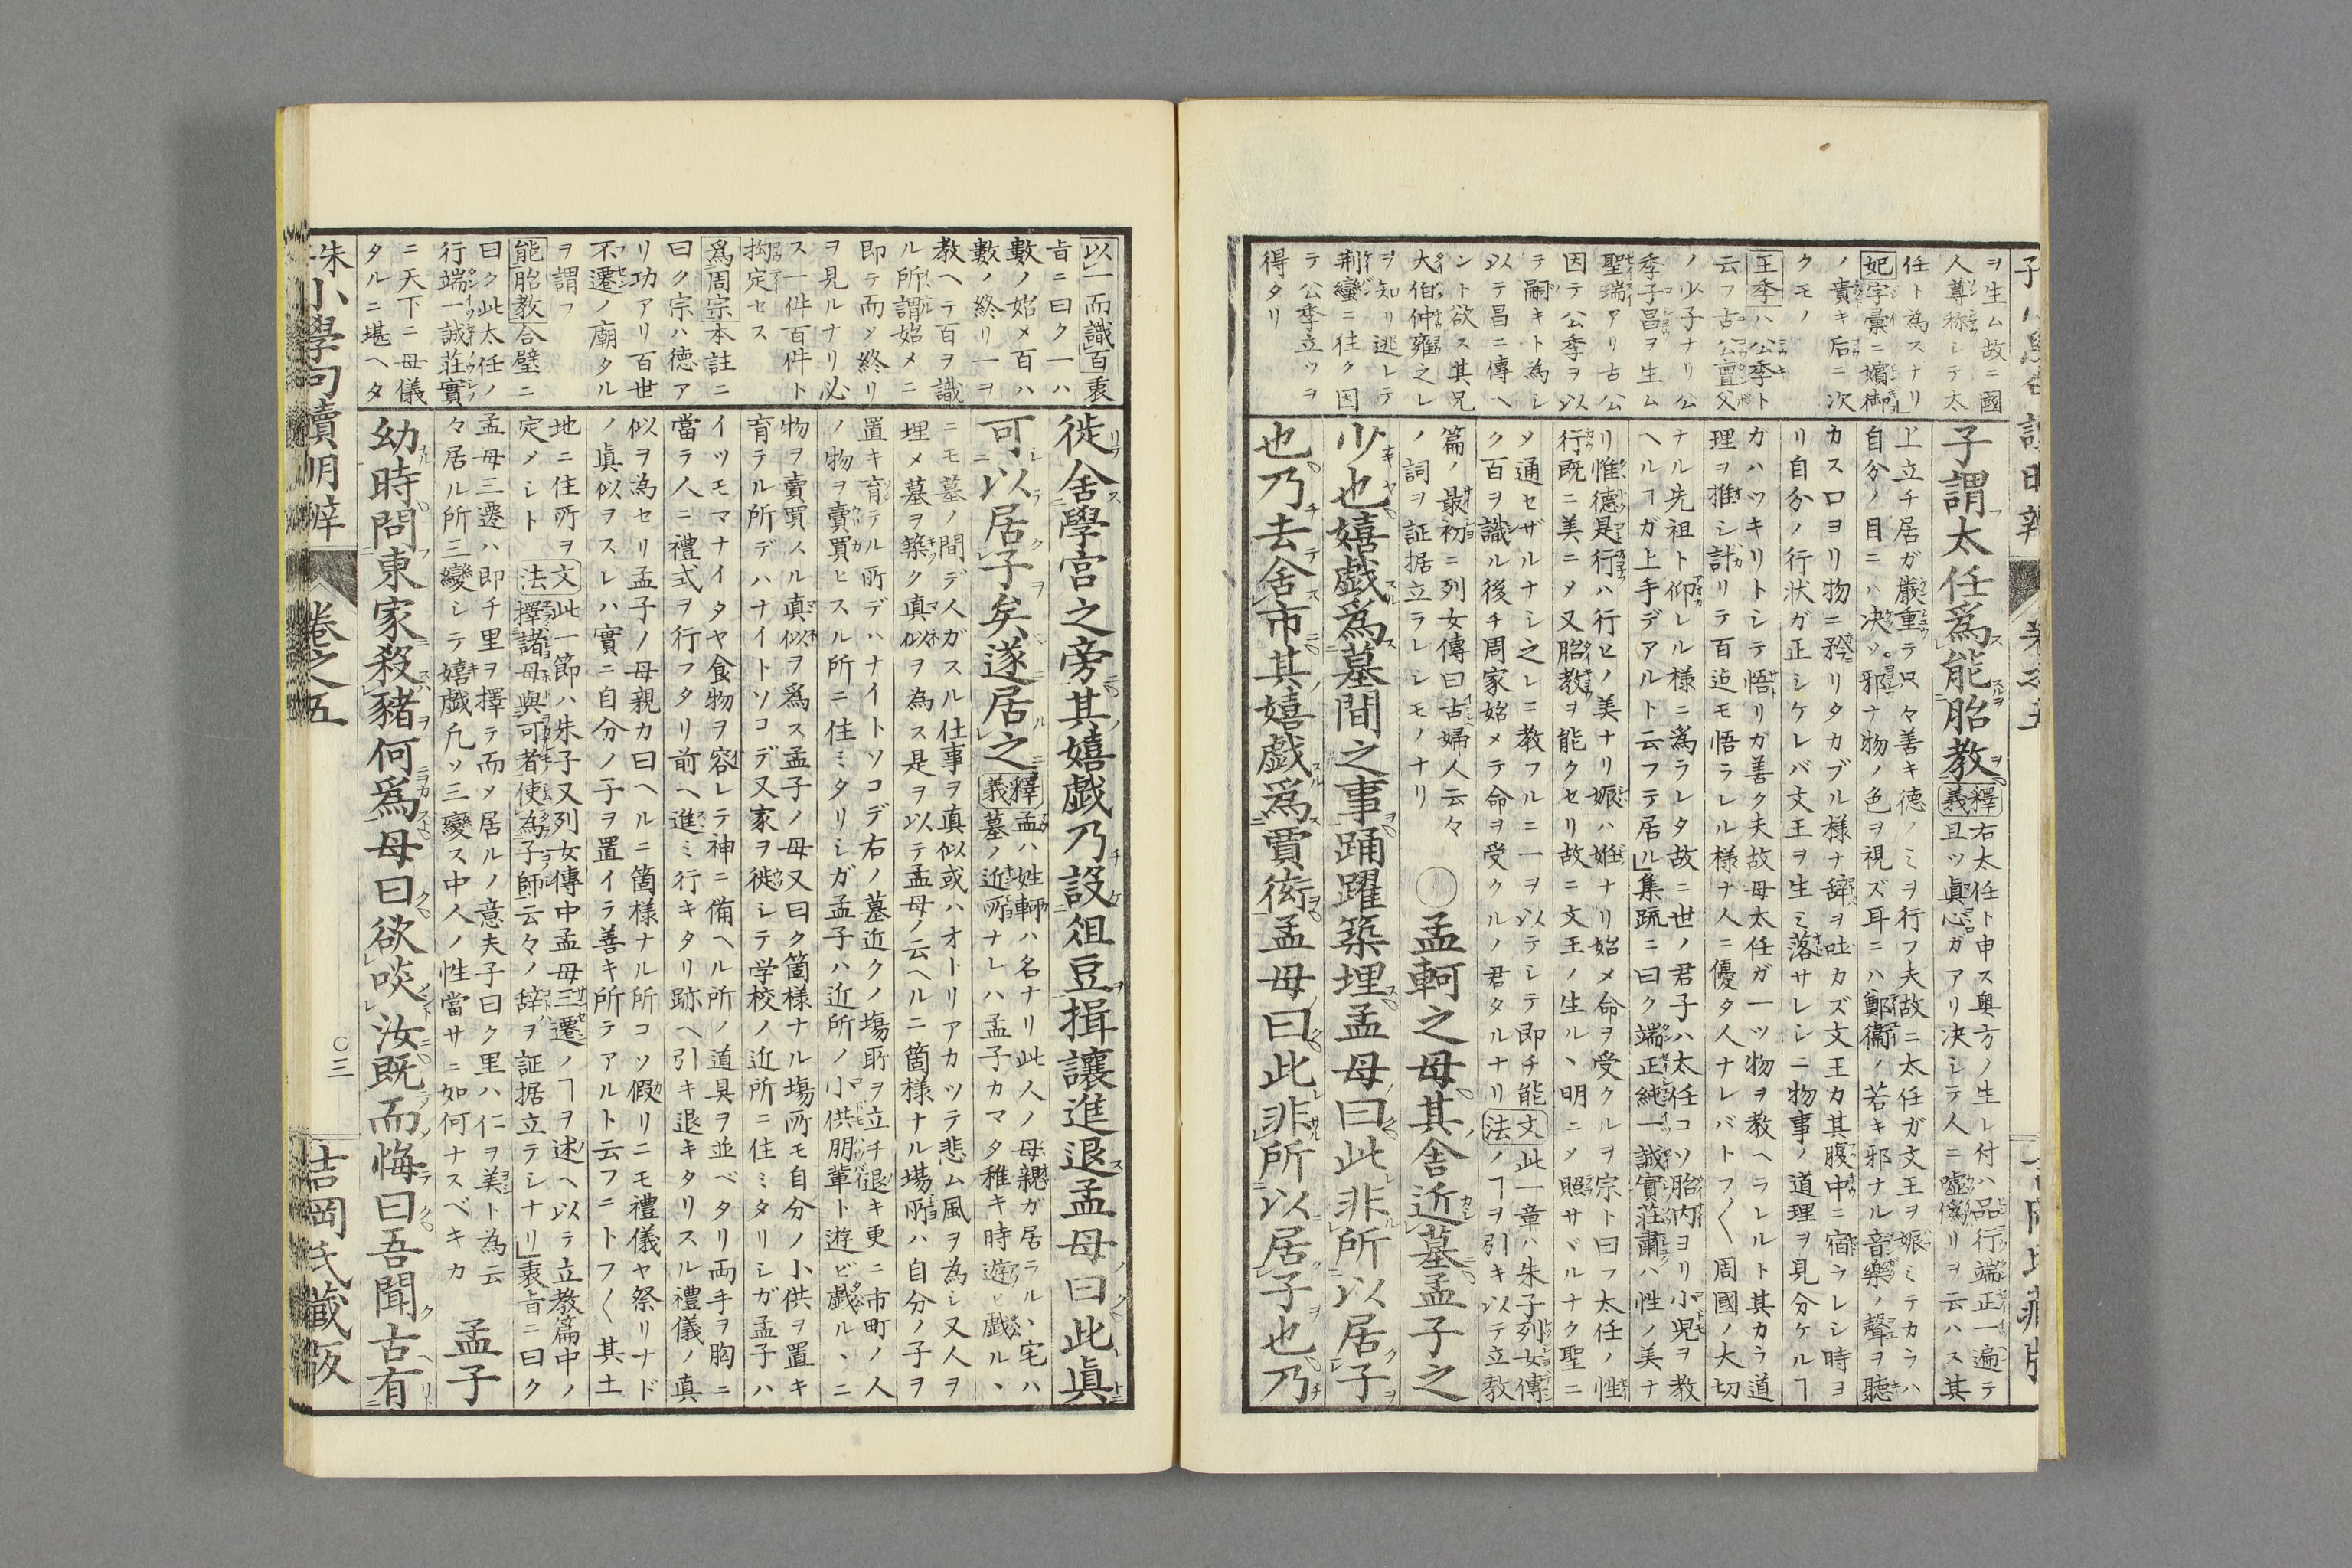 ヲ生ム故ニ國
人尊称シテ太
任ト為スナリ
妃字彙ニ嬪御
ノ貴キ后ニ次
クモノ
王季ハ公季ト
云フ古公亶父
ノ少子ナリ公
季子昌ヲ生ム
聖瑞アリ古公
因テ公季ヲ以
テ嗣キト為シ
以テ昌ニ傳ヘ
ント欲ス其兄
大伯仲雍之レ
ヲ知リ逃レテ
荆蠻ニ往ク因
テ公季立ツヲ
得タリ
子謂太任爲能胎教
釋義右太任ト申ス奥方ノ生レ付ハ品行端正一遍テ
且ツ眞心ガアリ决シテ人ニ嘘僞リヲ云ハス其
上立チ居ガ厳重テ只々善キ徳ノミヲ行フ夫故ニ太任ガ文王ヲ娠ミテカラハ
自分ノ目ニハ决ソ邪ナ物ノ色ヲ視ズ耳ニハ鄭衞ノ若キ邪ナル音樂ノ聲ヲ聽
カス口ヨリ物ニ矜リタカブル様ナ辞ヲ吐カズ文王カ其腹中ニ宿ラレシ時ヨ
リ自分ノ行状ガ正シケレバ文王ヲ生ミ落サレシニ物事ノ道理ヲ見分ケルヿ
ガハツキリトシテ悟リガ善ク夫故母太任ガ一ツ物ヲ教ヘラレルト其カラ道
理ヲ推シ計リテ百迠モ悟ラレル様ナ人ニ優タ人ナレバトフ〱周國ノ大切
ナル先祖ト仰レル様ニ爲ラレタ故ニ世ノ君子ハ太任コソ胎内ヨリ小児ヲ教
ヘルヿガ上手デアルト云フテ居ル」集疏ニ曰ク端正純一誠實莊肅ハ性ノ美ナ
リ惟德是行ハ行ヒノ美ナリ娠ハ姙ナリ始メ命ヲ受クルヲ宗ト曰フ太任ノ性
行既ニ美ニ〆又胎教ヲ能クセリ故ニ文王ノ生ルヽ明ニ〆照サヾルナク聖ニ
〆通セザルナシ之レニ教フルニ一ヲ以テシテ即チ能
ク百ヲ識ル後チ周家始メテ命ヲ受クルノ君タルナリ
文法此一章ハ朱子列女傳
ノヿヲ引キ以テ立教
篇ノ最初ニ列女傳曰古婦人云々
ノ詞ヲ証据立ラレシモノナリ
○孟軻之母其舍近墓孟子之
少也嬉戯爲墓間之事踊躍築埋孟母曰此非所以居子
也乃去舍市其嬉戯爲賈衒孟母曰此非所以居子也乃
以一而識百衷
旨ニ曰ク一ハ
數ノ始メ百ハ
數ノ終リ一ヲ
教ヘテ百ヲ識
ル所謂始メニ
即テ而〆終リ
ヲ見ルナリ必
ス一件百件ト
拘定セス
爲周宗本註ニ
曰ク宗ハ徳ア
リ功アリ百世
不遷ノ廟タル
ヲ謂フ
能胎教合璧ニ
曰ク此太任ノ
行端一誠莊實
ニ天下ニ母儀
タルニ堪ヘタ
徙舍學宮之旁其嬉戯乃設俎豆揖讓進退孟母曰此眞
可以居子矣遂居之
釋義孟ハ姓軻ハ名ナリ此人ノ母親ガ居ラルヽ宅ハ
墓ノ近所ナレハ孟子カマタ稚キ時遊ヒ戯ルヽ
ニモ墓ノ間デ人ガスル仕事ヲ真似或ハオトリアカツテ悲ム風ヲ為シ又人ヲ
埋メ墓ヲ築ク真似ヲ為ス是ヲ以テ孟母ノ云ヘルニ箇様ナル場所ハ自分ノ子ヲ
置キ育テル所デハナイトソコデ右ノ墓近クノ塲所ヲ立チ退キ更ニ市町ノ人
ノ物ヲ賣買ヒスル所ニ住ミタリシガ孟子ハ近所ノ小供朋輩ト遊ビ戯ルヽニ
物ヲ賣買スル真似ヲ爲ス孟子ノ母又曰ク箇様ナル塲所モ自分ノ小供ヲ置キ
育テル所デハナイトソコデ又家ヲ徙シテ学校ノ近所ニ住ミタリシガ孟子ハ
イツモマナイタヤ食物ヲ容レテ神ニ備ヘル所ノ道具ヲ並ベタリ両手ヲ胸ニ
當ラ人ニ禮式ヲ行フタリ前ヘ進ミ行キタリ跡ヘ引キ退キタリスル禮儀ノ真
似ヲ為セリ孟子ノ母親カ曰ヘルニ箇様ナル所コソ假リニモ禮儀ヤ祭リナド
ノ眞似ヲスレハ實ニ自分ノ子ヲ置イラ善キ所テアルト云フニトフ〱其土
地ニ住所ヲ
定メシト
文法此一節ハ朱子又列女傳中孟母三遷ノヿヲ述ヘ以テ立教篇中ノ
擇諸母與可者使爲子師云々ノ辞ヲ証据立テシナリ」衷旨ニ曰ク
孟母三遷ハ即チ里ヲ擇テ而〆居ルノ意夫子曰ク里ハ仁ヲ美ト為云
々居ル所三變シテ嬉戯凡ソ三變ス中人ノ性當サニ如何ナスベキカ
孟子
幼時問東家殺豬何爲母曰欲啖汝既而悔曰吾聞古有
朱小學句讀明辨
卷之五
○三
吉岡氏藏版